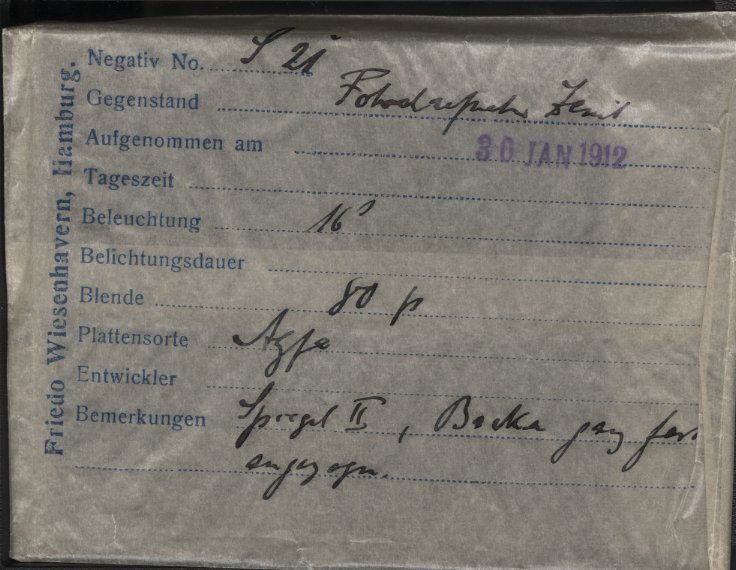 Friedo Wiesenhavern, Hamburg.
Negativ No. S 21
Gegenstand
Aufgenommen am 30 JAN 1912
Tageszeit
Beleuchtung 16ˢ
Belichtungsdauer
Blende 80 p
Plattensorte Agfa
Entwickler
Bemerkungen Spiegel II, Backen ganz fest
angezogen.